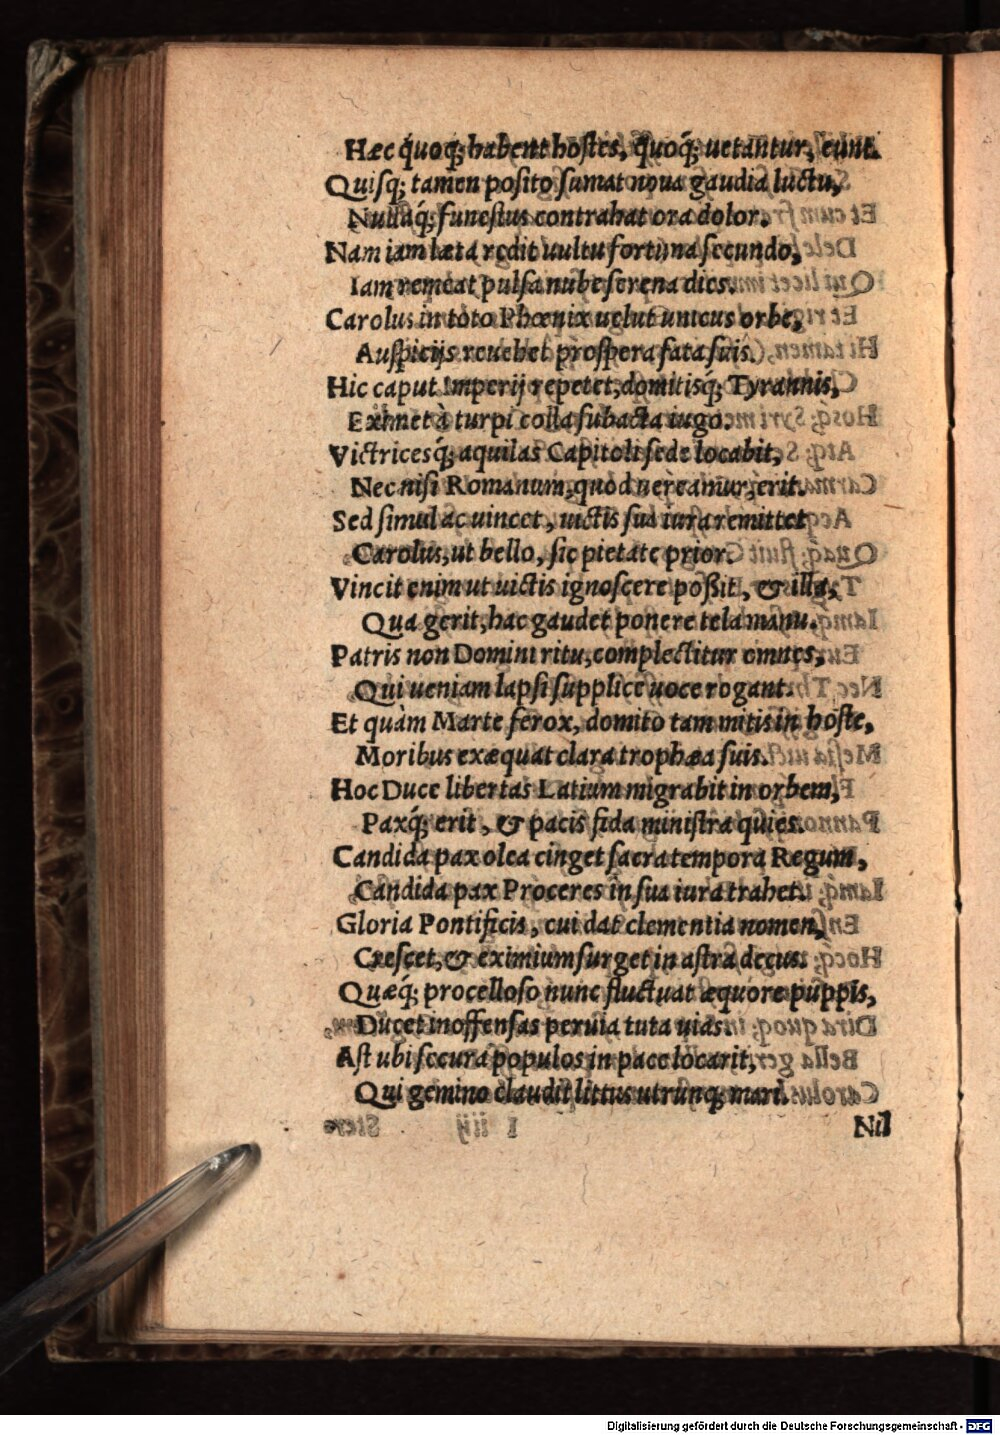 Hæc quoq́; habent hostes, quoq́; uetantur, eunt.
Quisq; tamen posito sumat noua gaudia luctu,
Nulláq́; funestus contrahat ora dolor.
Nam iam læta redit uultu fortuna secundo,
Iam remeat pulsa nube serena dies.
Carolus in toto Phœnix uelut unicus orbe,
Auspicijs reuehet prospera fata suis.
Hic caput Imperij repetet, domitisq́; Tyrannis,
Eximet à turpi colla subacta iugo.
Victricesq́; aquilas Capitoli sede locabit,
Nec nisi Romanum, quod uereamur, erit.
Sed simul ac uincet, uictis sua iura remittet
Carolus, ut bello, sic pietate prior.
Vincit enim ut uictis ignoscere poßit, & illa,
Qua gerit, hac gaudet ponere tela manu.
Patris non Domini ritu, complectitur omnes,
Qui ueniam lapsi supplice uoce rogant.
Et quàm Marte ferox, domito tam mitis in hoste,
Moribus exæquat clara trophæa suis.
Hoc Duce libertas Latium migrabit in orbem,
Paxq́; erit, & pacis fida ministra quies.
Candida pax olea cinget sacra tempora Regum,
Candida pax Proceres in sua iura trahet.
Gloria Pontificis, cui dat clementia nomen,
Crescet, & eximium surget in astra decus.
Quæq́; procelloso nunc fluctuat æquore puppis,
Ducet inoffensas peruia tuta uias.
Ast ubi secura populos in pace locarit,
Qui gemino claudit littus utrunq; mari.
Nil
Digitalisierung gefördert durch die Deutsche Forschungsgemeinschaft - DFG